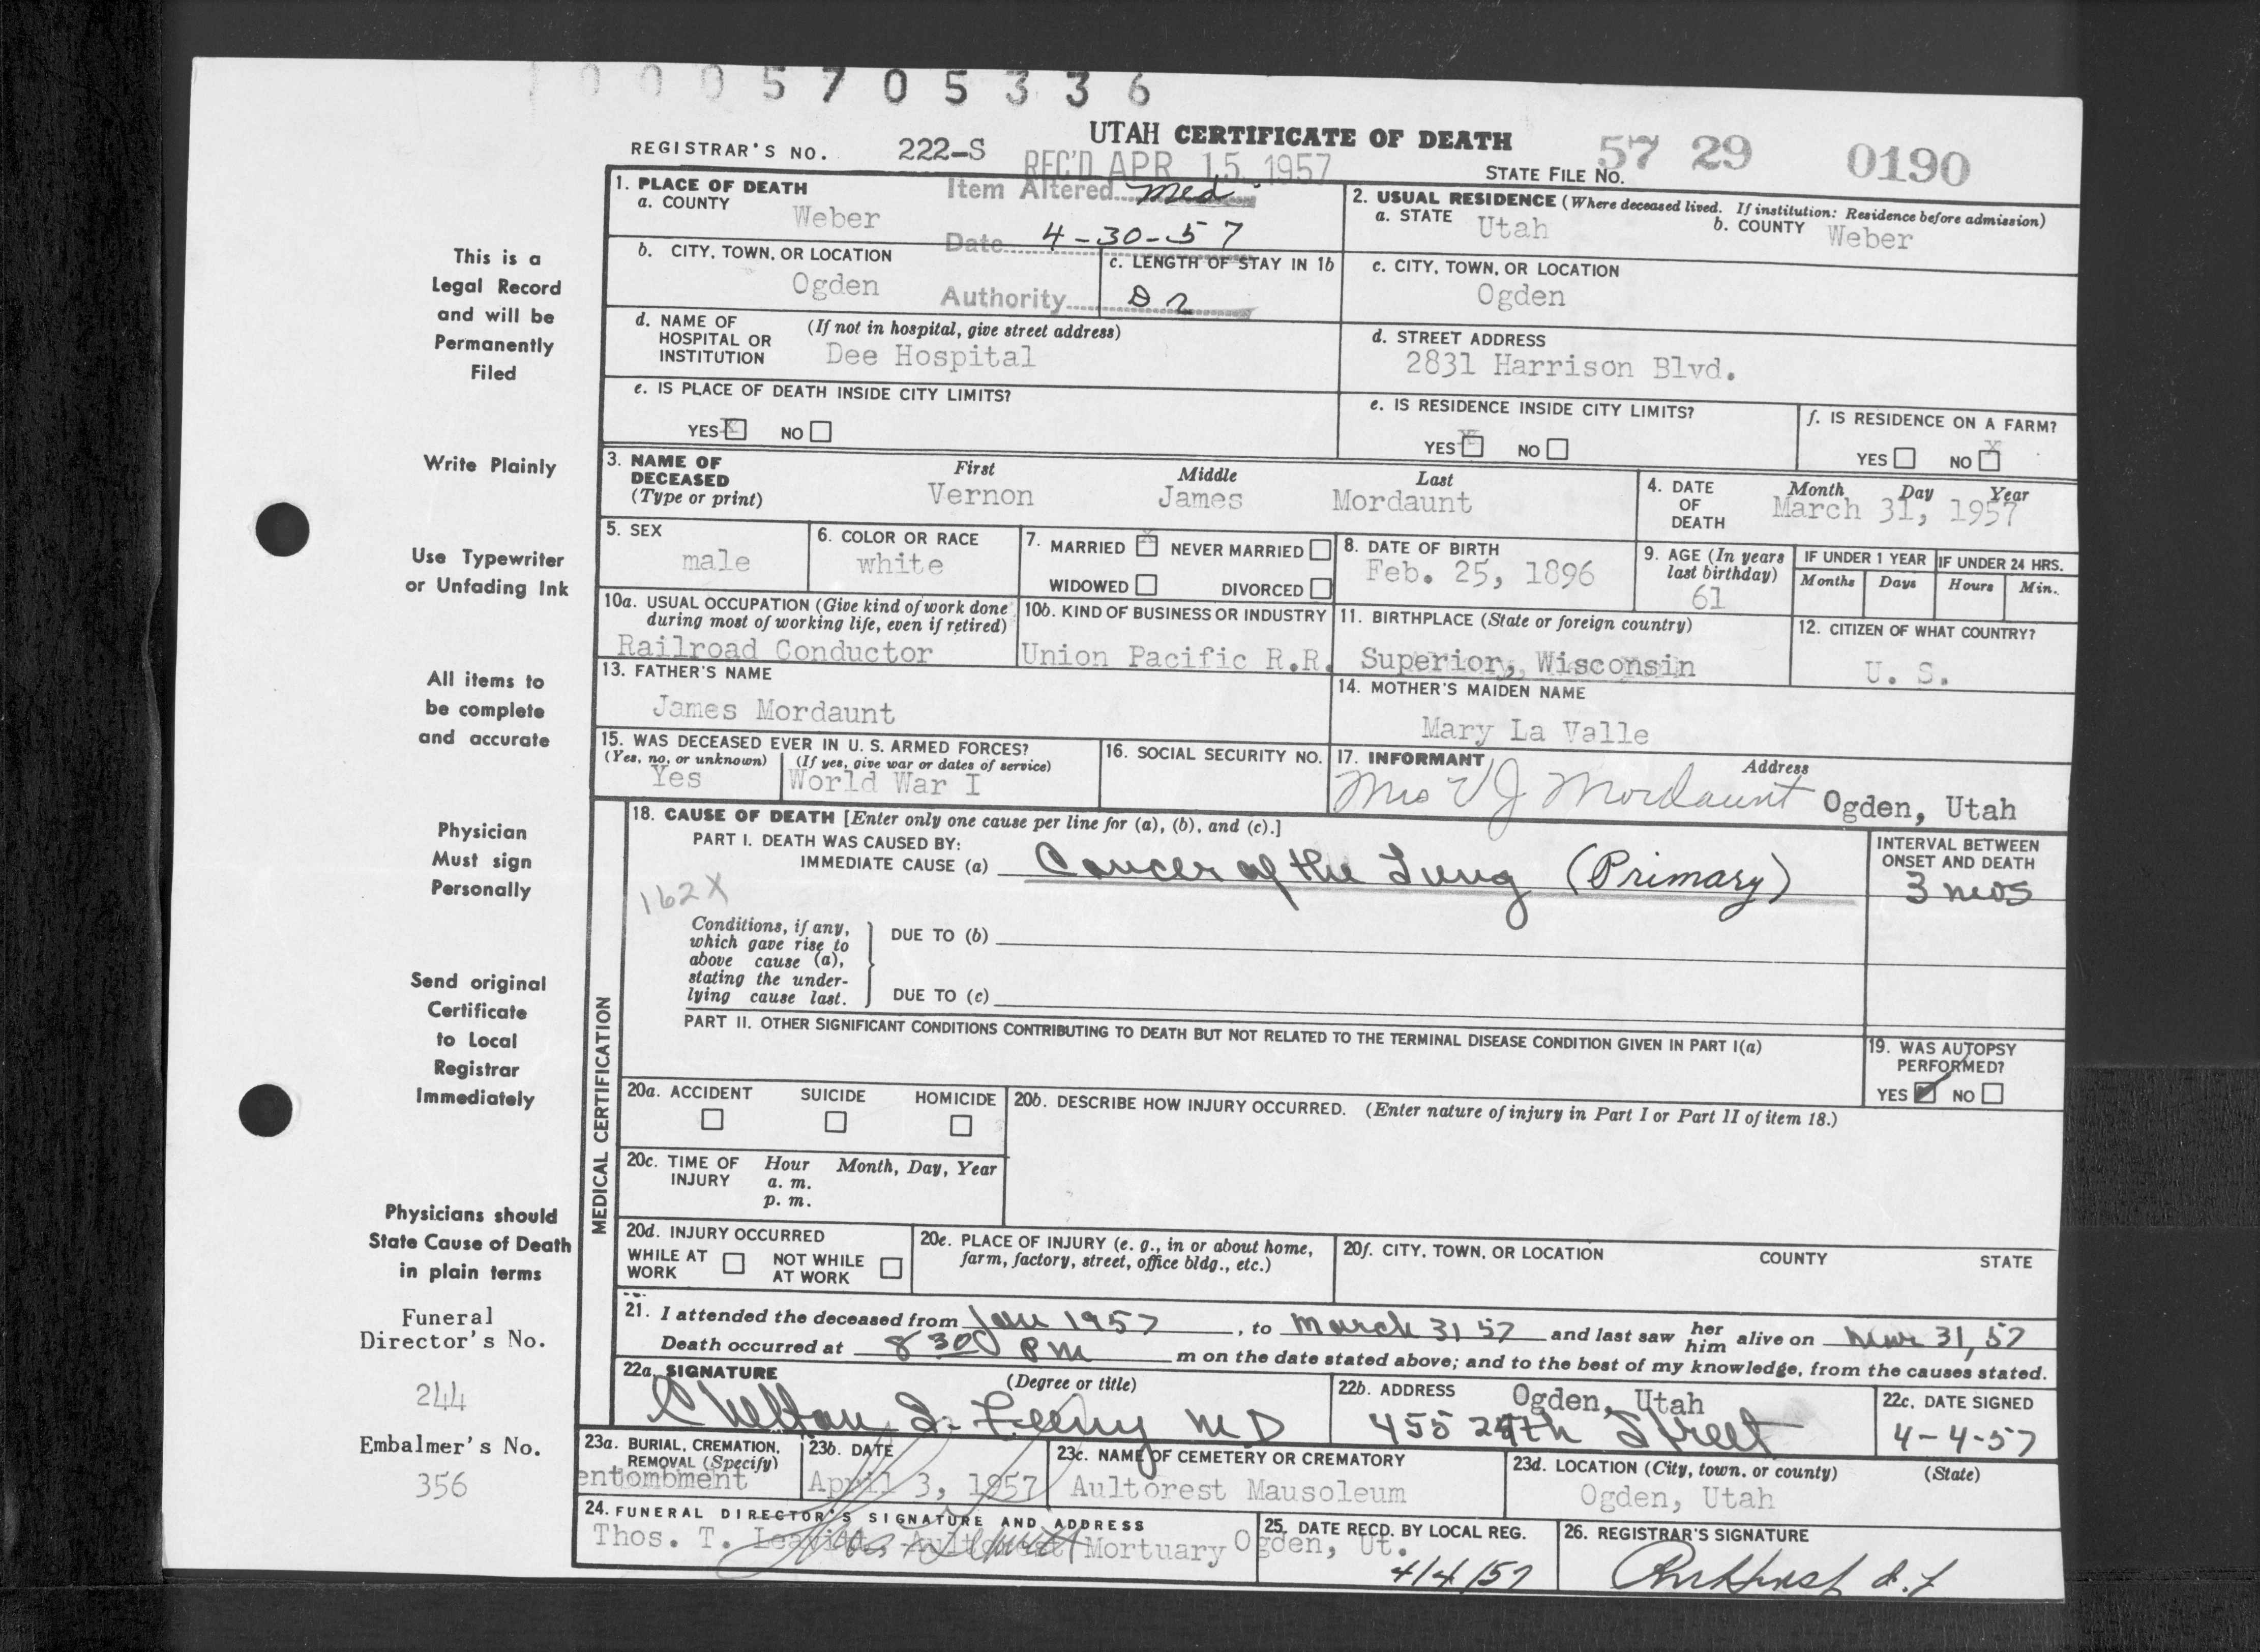 10005705336
UTAH CERTIFICATE OF DEATH
REGISTRAR'S NO. 222-S
REC'D APR 15 1957
STATE FILE NO. 57 29 0190
1. PLACE OF DEATH
a. COUNTY
Weber
Item Altered Med
Date 4-30-57
Authority
2. USUAL RESIDENCE (Where deceased lived. If institution: Residence before admission)
a. STATE Utah b. COUNTY Weber
b. CITY, TOWN, OR LOCATION
Ogden
c. LENGTH OF STAY IN 1b
c. CITY, TOWN, OR LOCATION
Ogden
d. NAME OF HOSPITAL OR INSTITUTION (If not in hospital, give street address)
Dee Hospital
d. STREET ADDRESS
2831 Harrison Blvd.
e. IS PLACE OF DEATH INSIDE CITY LIMITS?
YES X NO
e. IS RESIDENCE INSIDE CITY LIMITS?
YES X NO
f. IS RESIDENCE ON A FARM?
YES NO X
3. NAME OF DECEASED (Type or print)
First Middle Last
Vernon James Mordaunt
4. DATE OF DEATH
Month Day Year
March 31, 1957
5. SEX
male
6. COLOR OR RACE
white
7. MARRIED X NEVER MARRIED
WIDOWED DIVORCED
8. DATE OF BIRTH
Feb. 25, 1896
9. AGE (In years last birthday)
61
IF UNDER 1 YEAR
Months Days
IF UNDER 24 HRS.
Hours Min.
10a. USUAL OCCUPATION (Give kind of work done during most of working life, even if retired)
Railroad Conductor
10b. KIND OF BUSINESS OR INDUSTRY
Union Pacific R.R.
11. BIRTHPLACE (State or foreign country)
Superior, Wisconsin
12. CITIZEN OF WHAT COUNTRY?
U. S.
13. FATHER'S NAME
James Mordaunt
14. MOTHER'S MAIDEN NAME
Mary La Valle
15. WAS DECEASED EVER IN U. S. ARMED FORCES?
(Yes, no, or unknown) (If yes, give war or dates of service)
Yes World War I
16. SOCIAL SECURITY NO.
17. INFORMANT Address
Mrs V J Mordaunt Ogden, Utah
MEDICAL CERTIFICATION
18. CAUSE OF DEATH [Enter only one cause per line for (a), (b), and (c).]
PART I. DEATH WAS CAUSED BY:
IMMEDIATE CAUSE (a) Cancer of the Lung (Primary)
INTERVAL BETWEEN ONSET AND DEATH
3 mos
162X
Conditions, if any, which gave rise to above cause (a), stating the underlying cause last.
DUE TO (b)
DUE TO (c)
PART II. OTHER SIGNIFICANT CONDITIONS CONTRIBUTING TO DEATH BUT NOT RELATED TO THE TERMINAL DISEASE CONDITION GIVEN IN PART I(a)
19. WAS AUTOPSY PERFORMED?
YES NO
20a. ACCIDENT SUICIDE HOMICIDE
20b. DESCRIBE HOW INJURY OCCURRED. (Enter nature of injury in Part I or Part II of item 18.)
20c. TIME OF INJURY Hour Month, Day, Year
a. m.
p. m.
20d. INJURY OCCURRED
WHILE AT WORK NOT WHILE AT WORK
20e. PLACE OF INJURY (e. g., in or about home, farm, factory, street, office bldg., etc.)
20f. CITY, TOWN, OR LOCATION COUNTY STATE
21. I attended the deceased from Jan 1957, to March 31 57 and last saw her him alive on Mar 31, 57
Death occurred at 8 30 PM m on the date stated above; and to the best of my knowledge, from the causes stated.
22a. SIGNATURE (Degree or title)
M D
22b. ADDRESS
Ogden, Utah
455 24th Street
22c. DATE SIGNED
4-4-57
23a. BURIAL, CREMATION, REMOVAL (Specify)
entombment
23b. DATE
April 3, 1957
23c. NAME OF CEMETERY OR CREMATORY
Aultorest Mausoleum
23d. LOCATION (City, town, or county) (State)
Ogden, Utah
24. FUNERAL DIRECTOR'S SIGNATURE AND ADDRESS
Thos. T. Leavitt, Aultorest Mortuary Ogden, Ut.
25. DATE RECD. BY LOCAL REG.
4/4/57
26. REGISTRAR'S SIGNATURE
This is a
Legal Record
and will be
Permanently
Filed
Write Plainly
Use Typewriter
or Unfading Ink
All items to
be complete
and accurate
Physician
Must sign
Personally
Send original
Certificate
to Local
Registrar
Immediately
Physicians should
State Cause of Death
in plain terms
Funeral
Director's No.
244
Embalmer's No.
356